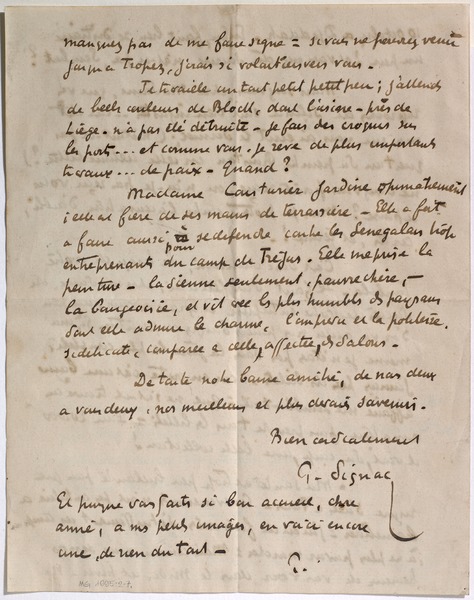 manquez pas de me faire signe = si vous ne pouvez venir
jusqu'à Tropez, j'irais si volontiers vers vous.
Je travaille un tout petit petit peu ; j'attends
de belles couleurs de Blockx, dont l'usine - près de
Liège - n'a pas été détruite - je fais des croquis sur
les ports ... et comme vous, je rêve de plus importants
travaux ... de paix - Quand ?
Madame Cousturier jardine opiniâtrement
; elle est fière de ses mains de terrassière - Elle a fort
à faire aussi pour se défendre contre les Sénégalais trop
entreprenants du camp de Fréjus. Elle méprise la
peinture - la sienne seulement, pauvre chère, -
la bourgeoisie, et vit avec les plus humbles des paysans
dont elle admire le charme, l'imprévu et la politesse,
si délicate, comparée à celle, affectée, des Salons.
De toute notre bonne amitié, de nous deux
à vous deux, nos meilleurs et plus dévoués souvenirs.
Bien cordialement
P. Signac
Et puisque vous faites si bon accueil, chère
amie, à mes petits images, en voici encore
une, de rien du tout -
P.